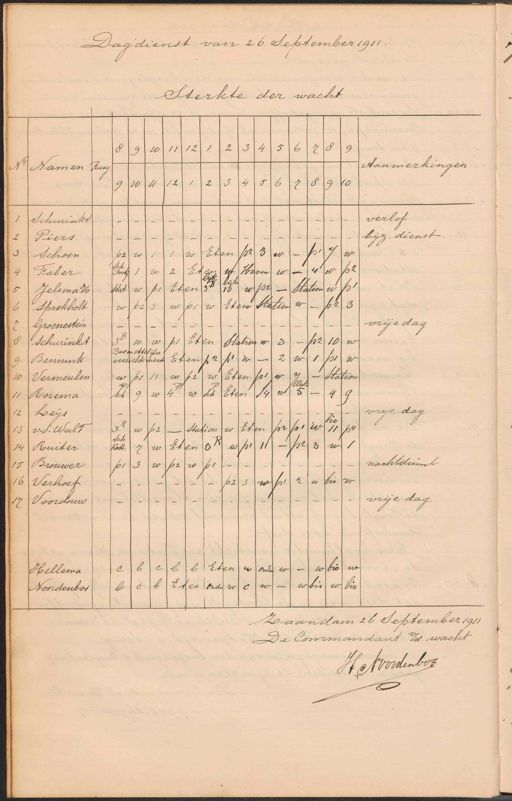 Dagdienst van 26 September 1911.
Sterkte der wacht
No Namen Rang 8 9 10 11 12 1 2 3 4 5 6 7 8 9 Aanmerkingen
9 10 11 12 1 2 3 4 5 6 7 8 9 10
1 Schurinkt - - - - - - - - - - - - - - verlof
2 Piers - - - - - - - - - - - - - - byz. dienst
3 Schoen b2 w 1 1 w Eten p2 3 w - p1 7 w
4 Faber 1 w 2 Eten w w - 4 w p2
5 Jelsma H. w p1 Eten w p2 - Station w p1
6 Sprokholt w b2 3 w p1 w Eten Station w - p2 3
7 Groenestein - - - - - - - - - - - - - - vrije dag
8 Schurinkt 3R w w p1 Eten Station w 3 - p2 10 w
9 Bennink Eten p2 p1 w - 2 w 1 p1 w
10 Vermeulen w p1 11 w p2 w Eten p1 w 7 - Station
11 Rozema 9 w 4R w Eten 14 w 5 - 4 9
12 Leijs - - - - - - - - - - - - - - vrije dag
13 v.d. Walt 3R w p2 - Station w Eten p2 p1 w 11 p1
14 Ruiter 7 w Eten 3R w p1 11 - p2 3 w 1
15 Brouwer p1 3 w p2 w p1 - - - - - - - - nachtdienst
16 Verhoef - - - - - - p2 3 w p1 2 w bio w
17 Voordouw - - - - - - - - - - - - - - vrije dag
Hellema c b c b b Eten w onder w - w bio w
Noordenbos b c b Eten onder w c w - w bio w bio
Zaandam 26 September 1911
De Commandant v/d wacht
H. Noordenbos